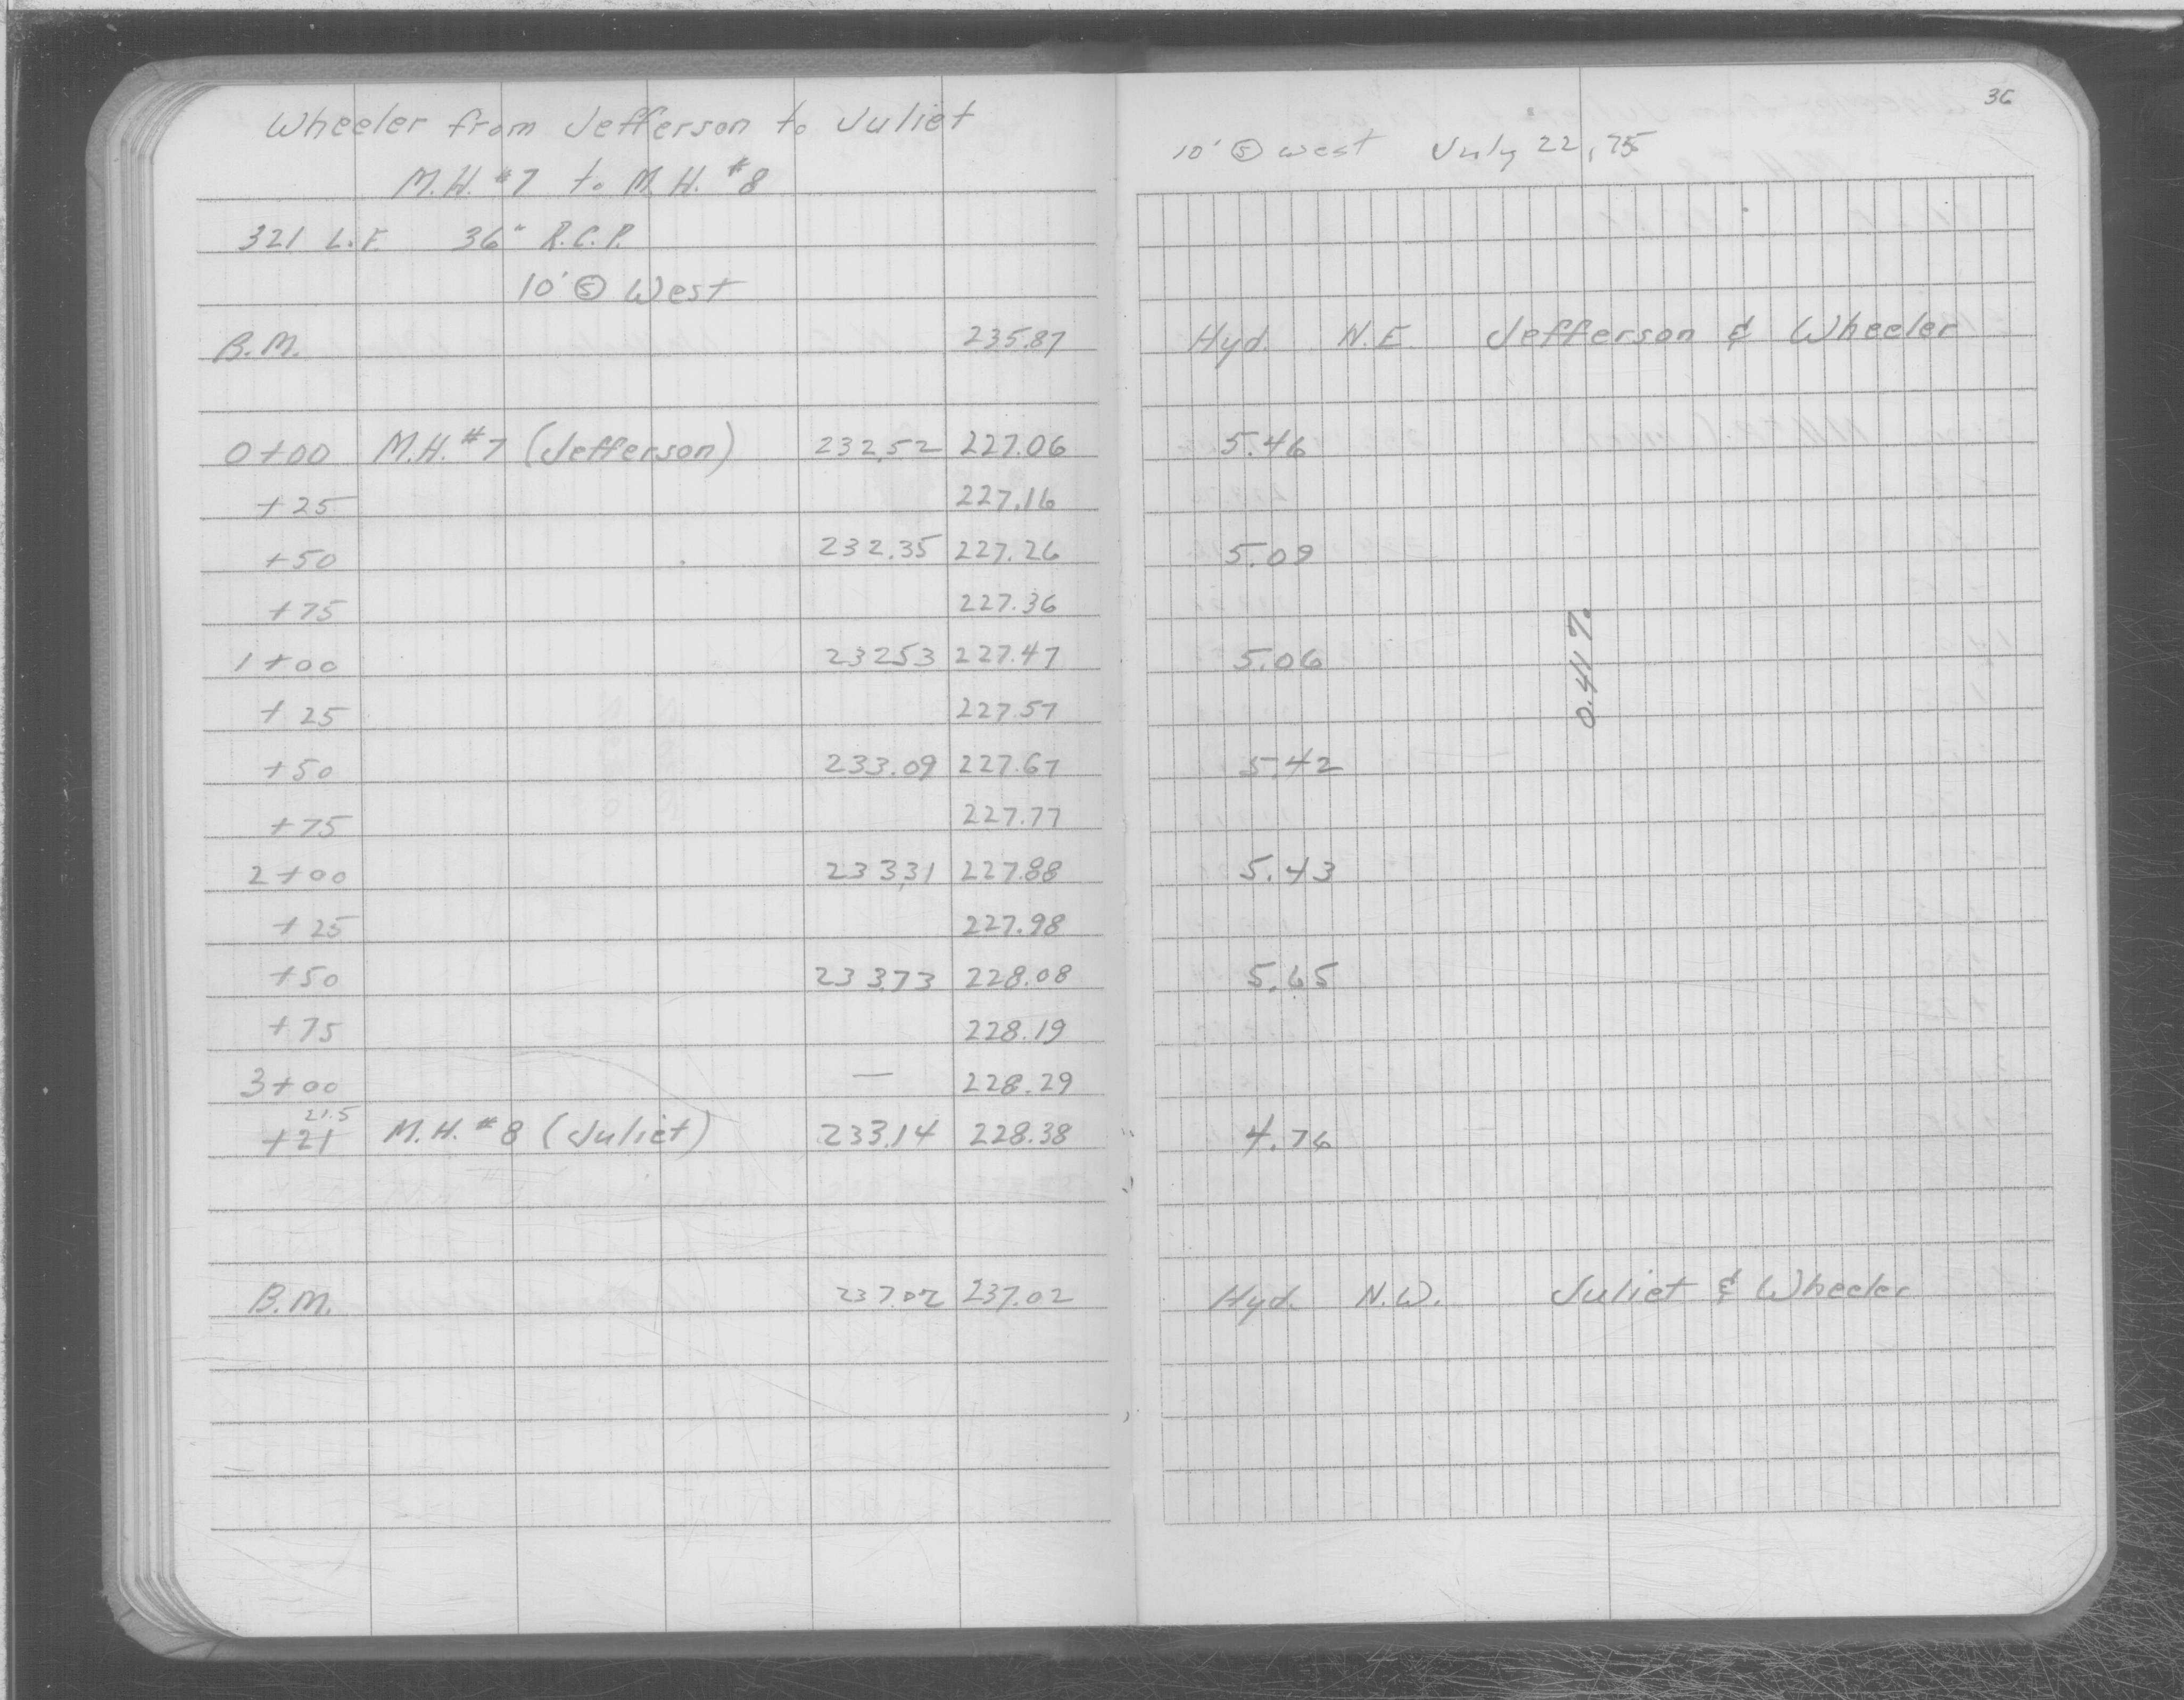 Wheeler from Jefferson to Juliet
M.H. #7 to M.H. #8
321 L.F. 36" R.C.P.
10' Ⓢ West
B.M. 235.87
0+00 M.H. #7 (Jefferson) 232.52 227.06
+25 227.16
+50 232.35 227.26
+75 227.36
1+00 23253 227.47
+25 227.57
+50 233.09 227.67
+75 227.77
2+00 233.31 227.88
+25 227.98
+50 233.73 228.08
+75 228.19
3+00 — 228.29
21.5
+21 M.H. #8 (Juliet) 233.14 228.38
B.M. 237.02 237.02
36
10' Ⓢ west July 22, 75
Hyd. N.E. Jefferson & Wheeler
5.46
5.09
0.411 %
5.06
5.42
5.43
5.65
4.76
Hyd. N.W. Juliet & Wheeler